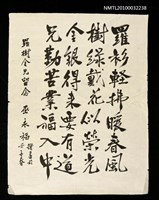 NMTL20100032238
羅衫輕拂暖春風
樹綠戴花似榮光
金銀得來要有道
兄勤苦業福入中
羅樹金兄留念